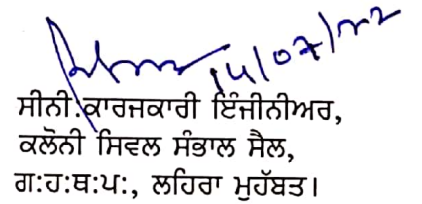 14/07/22
ਸੀਨੀ.ਕਾਰਜਕਾਰੀ ਇੰਜੀਨੀਅਰ,
ਕਲੋਨੀ ਸਿਵਲ ਸੰਭਾਲ ਸੈਲ,
ਗ:ਹ:ਥ:ਪ:, ਲਹਿਰਾ ਮੁਹੱਬਤ।